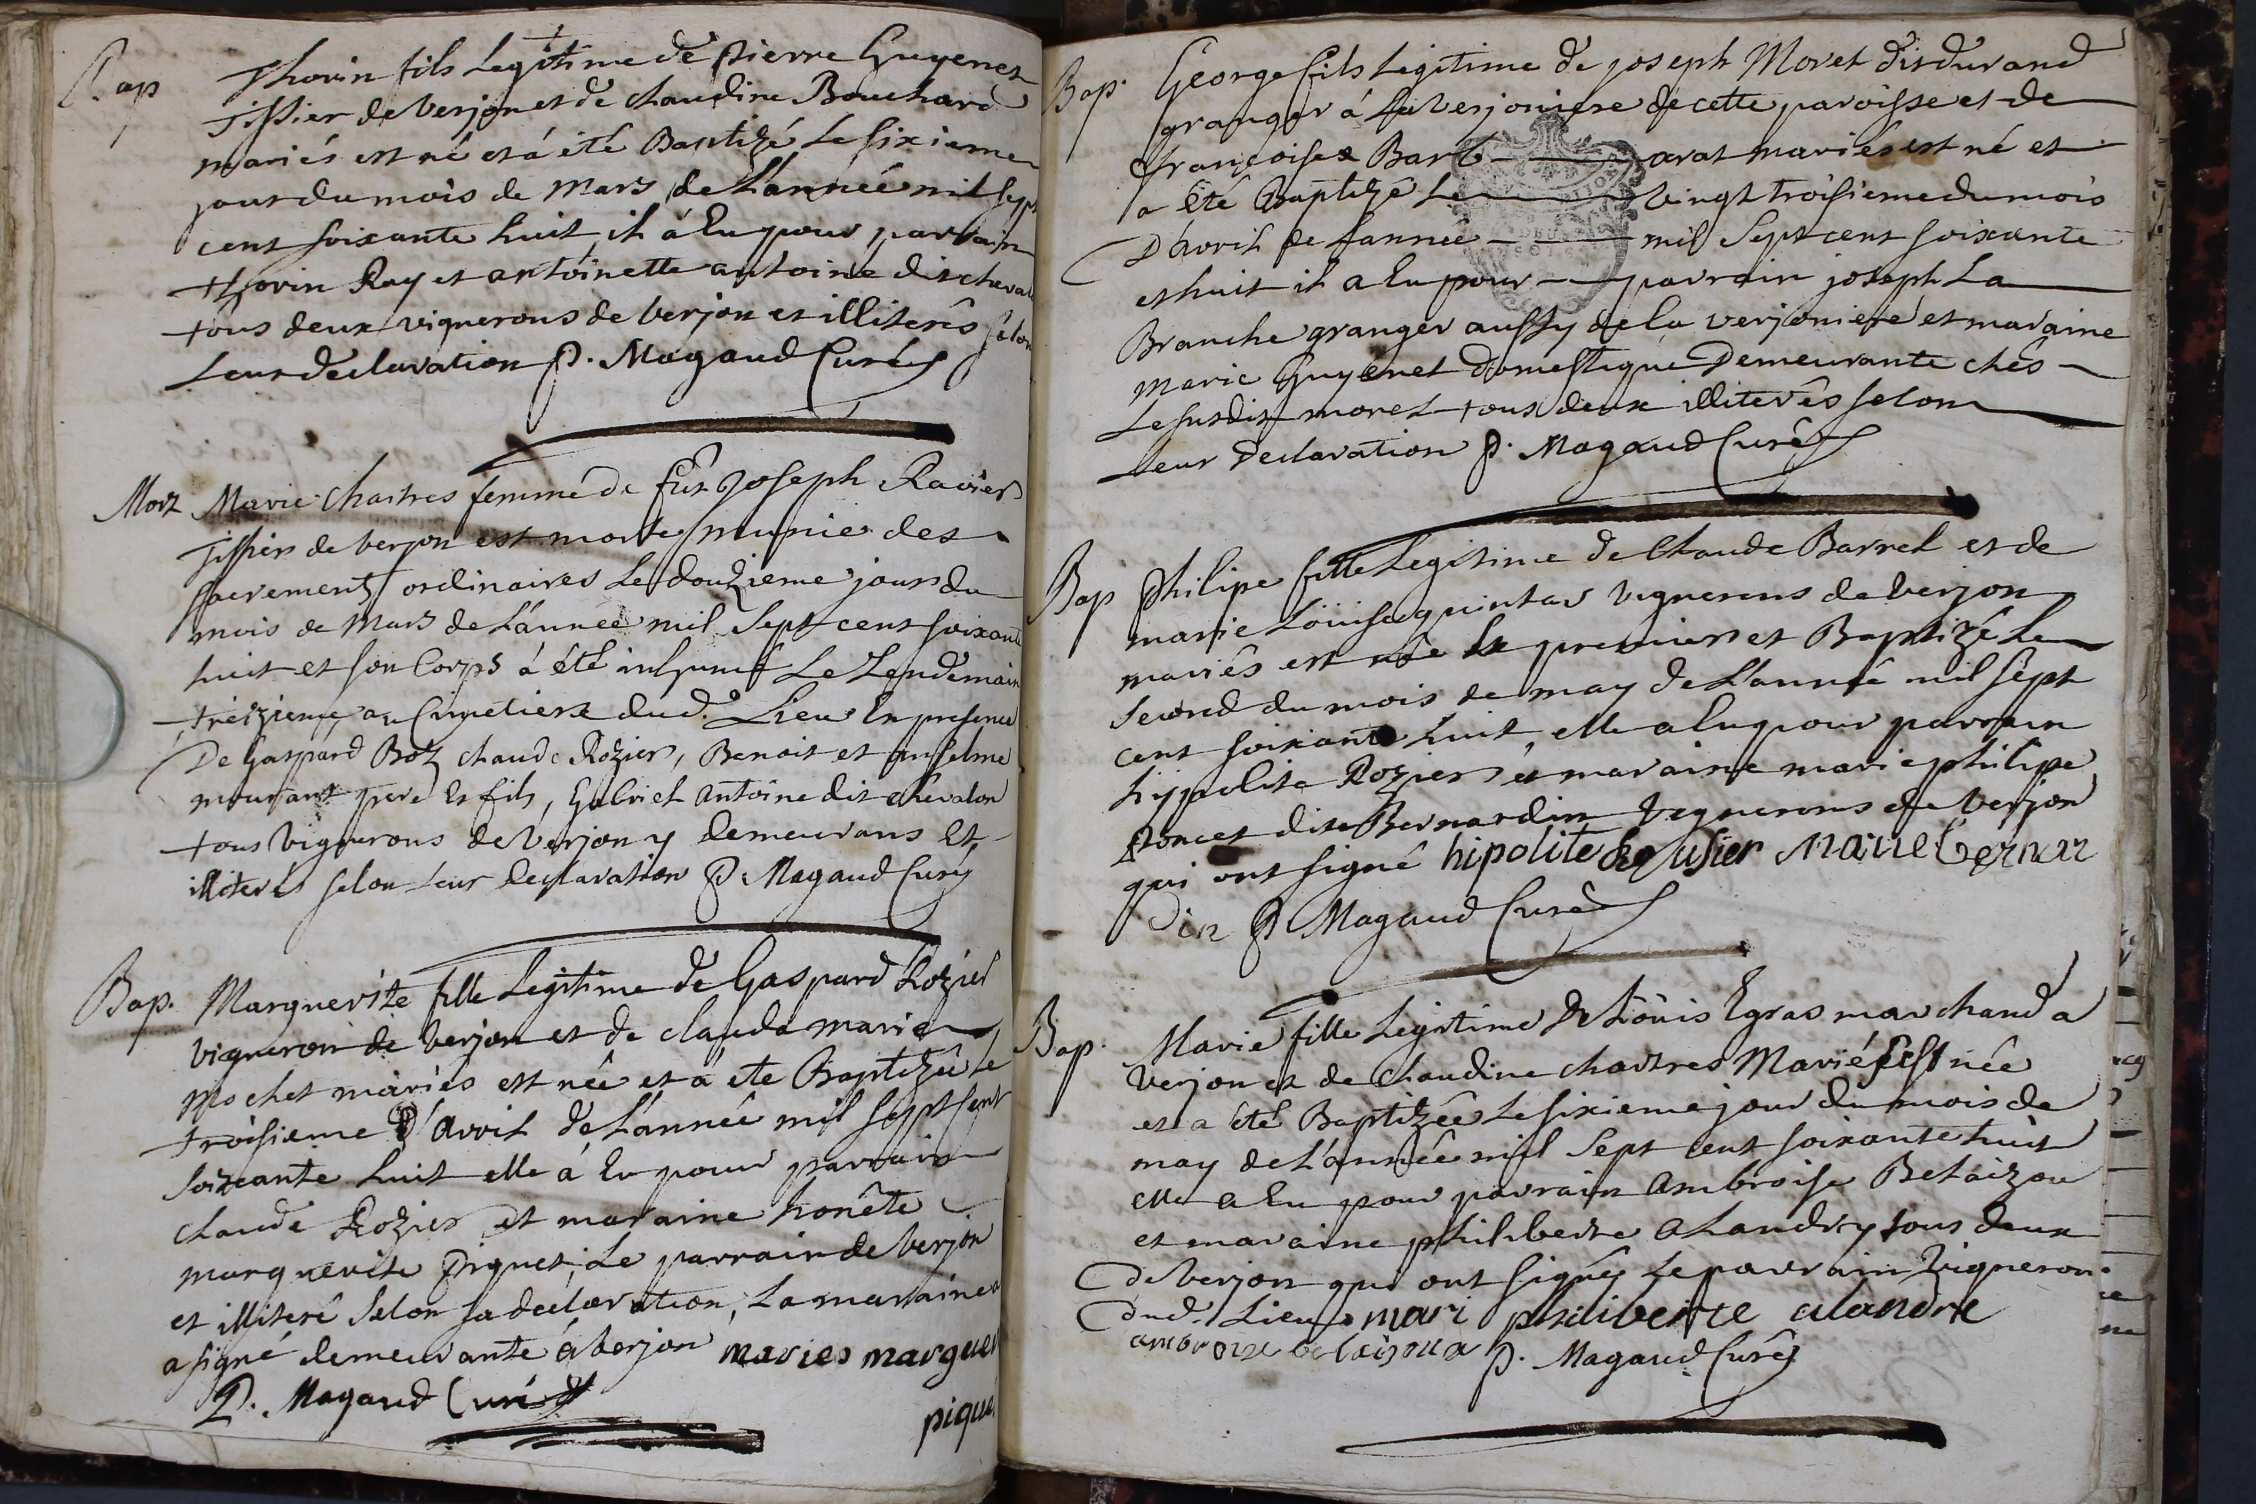 Bap Thorin fils Legitime de pierre Guyenet
Tissier de Verjon et de claudine Bouchard
mariés est né et á été Baptizé Le sixieme
jour du mois de Mars de L'année mil sept
cent soixante huit, il á Eu pour parrain
thorin Ray et antoinette antoine dit cheval
tous deux vignerons de Verjon et illiterés selon
Leur declaration P. Magaud Curé
Mort Marie chartres femme de fût Joseph Ravier
Tissier de Verjon est morte munie des
sacrements ordinaires Le douzieme jour du
mois de Mars de L'année mil sept cent soixante
huit et son Corps á été inhumé Le Lendemain
treizieme au Cimetiere dud. Lieu En presence
De Gaspard Boz claude Rozier, Benoit et anselme
mourant pere Et fils, Gabriel antoine dit chevalon
tous Vignerons de Verjon y demeurans Et
illiterés selon Leur Declaration P. Magaud Curé
Bap. Marguerite fille Legitime de Gaspard Rozier
Vigneron de Verjon et de claude marie
Mochet mariés est née et á ete Baptizée Le
troisieme D'avril de L'année mil sept sent
soixante huit elle á Eu pour parrain
claude Rozier et maraine honête
marguerite Piquet, Le parrain de Verjon
et illiteré Selon sa declaration, La maraine
a signé demeurante á Verjon maries marguer
P. Magaud Curé
pique
Bap. George fils Legitime de joseph Moret dit durand
granger á La Verjoniere de cette paroisse et de
françoise Barb arat mariés est né et
a été Baptizé Le Vingt troisieme du mois
D'avril de L'année mil Sept cent soixante
et huit il a Eu pour parrain joseph La
Branche granger aussy de La Verjoniere et maraine
marie Guyenet domestique Demeurante chés
Le susdit moret tous deux illiterés selon
Leur Declaration P. Magaud Curé
Bap Philipe fille Legitime de Claude Barrel et de
marie Loüise quintar Vignerons de Verjon
mariés est née Le premier et Baptizée Le
second du mois de may de L'année mil sept
cent soixante huit, elle a Eu pour parrain
hippolite Rozier et maraine marie philipe
Poncet dite Bernardin Vignerons de Verjon
qui ont signé hipolite Rousier Marie Bernar
din P. Magaud Curé
Bap. Marie fille Legitime de Loüis Egras marchand a
Verjon et de Claudine chartres Mariés est née
et a été Baptizée Le sixieme jour du mois de
may de L'année mil Sept cent soixante huit
elle a Eu pour parrain ambroise Belaizou
et maraine philiberte aLandry tous deux
de Verjon qui ont signé, Le parrain Vigneron
dud. Lieu mari philiberte alandre
ambroise belaisoux P. Magaud Curé